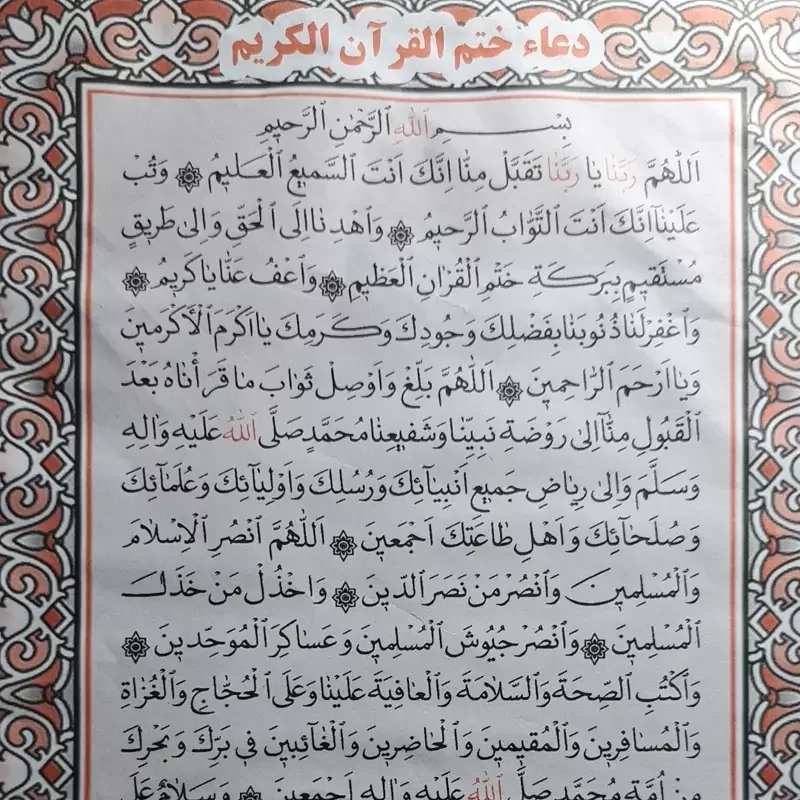 دعاء ختم القرآن الكريم
بِسْمِ اللهِ الرَّحْمٰنِ الرَّحِيمِ
اَللّٰهُمَّ رَبَّنَا يَا رَبَّنَا تَقَبَّلْ مِنَّا اِنَّكَ اَنْتَ السَّمِيعُ الْعَلِيمُ ۞ وَتُبْ
عَلَيْنَا اِنَّكَ اَنْتَ التَّوَّابُ الرَّحِيمُ ۞ وَاهْدِنَا اِلَى الْحَقِّ وَاِلٰى طَرِيقٍ
مُسْتَقِيمٍ بِبَرَكَةِ خَتْمِ الْقُرْاٰنِ الْعَظِيمِ ۞ وَاعْفُ عَنَّا يَا كَرِيمُ ۞
وَاغْفِرْ لَنَا ذُنُوبَنَا بِفَضْلِكَ وَجُودِكَ وَكَرَمِكَ يَا اَكْرَمَ الْاَكْرَمِينَ
وَيَا اَرْحَمَ الرَّاحِمِينَ ۞ اَللّٰهُمَّ بَلِّغْ وَاَوْصِلْ ثَوَابَ مَا قَرَأْنَاهُ بَعْدَ
الْقَبُولِ مِنَّا اِلٰى رَوْضَةِ نَبِيِّنَا وَشَفِيعِنَا مُحَمَّدٍ صَلَّى اللهُ عَلَيْهِ وَاٰلِهِ
وَسَلَّمَ وَاِلٰى رِيَاضِ جَمِيعِ اَنْبِيَآئِكَ وَرُسُلِكَ وَاَوْلِيَآئِكَ وَعُلَمَآئِكَ
وَصُلَحَآئِكَ وَاَهْلِ طَاعَتِكَ اَجْمَعِينَ ۞ اَللّٰهُمَّ انْصُرِ الْاِسْلَامَ
وَالْمُسْلِمِينَ وَانْصُرْ مَنْ نَصَرَ الدِّينَ ۞ وَاخْذُلْ مَنْ خَذَلَ
الْمُسْلِمِينَ ۞ وَانْصُرْ جُيُوشَ الْمُسْلِمِينَ وَعَسَاكِرَ الْمُوَحِّدِينَ ۞
وَاكْتُبِ الصِّحَةَ وَالسَّلَامَةَ وَالْعَافِيَةَ عَلَيْنَا وَعَلَى الْحُجَّاجِ وَالْغُزَاةِ
وَالْمُسَافِرِينَ وَالْمُقِيمِينَ وَالْحَاضِرِينَ وَالْغَآئِبِينَ فِي بَرِّكَ وَبَحْرِكَ
مِنْ اُمَّةِ مُحَمَّدٍ صَلَّى اللهُ عَلَيْهِ وَاٰلِهِ اَجْمَعِينَ ۞ وَسَلَامٌ عَلَى